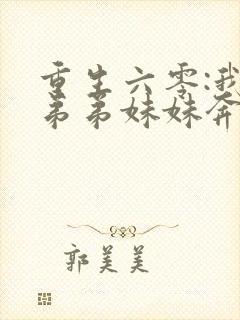 重生六零:我
弟弟妹妹奔
郭美美